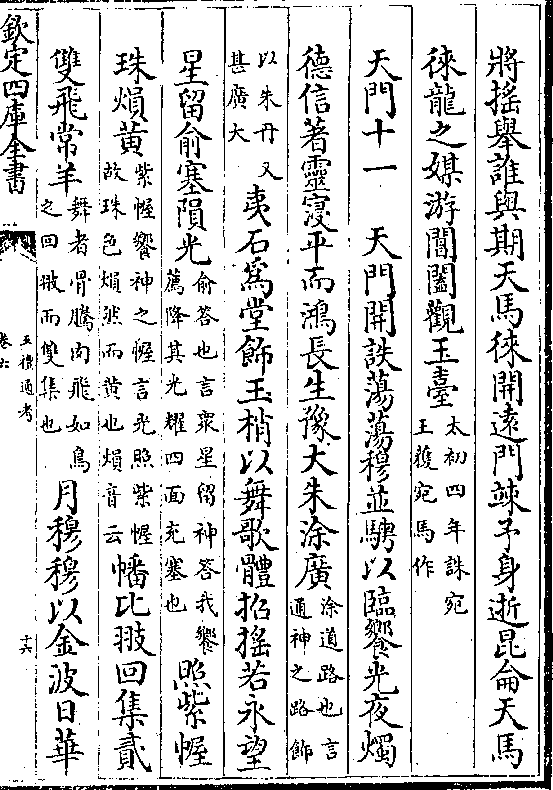 將搖舉誰與期天馬徠開遠門竦予身逝昆侖天馬
徠龍之媒游閶闔觀玉臺太初四年誅宛王獲宛馬作
天門十一　天門開詄蕩蕩穆並騁以臨饗光夜燭
德信著靈寖平而鴻長生豫大朱涂廣涂道路也言通神之路飾
以朱丹又甚廣大夷石為堂飾玉梢以舞歌體招搖若永望
星留俞塞隕光俞荅也言衆星留神荅我饗薦降其光耀四面充塞也照紫幄
珠熉黃紫幄饗神之幄言光照紫幄故珠色熉然而黃也熉音云幡比翄回集貳
雙飛常羊舞者骨騰肉飛如鳥之回翄而雙集也月穆穆以金波日華
欽定四庫全書
五禮通考
卷六
十六